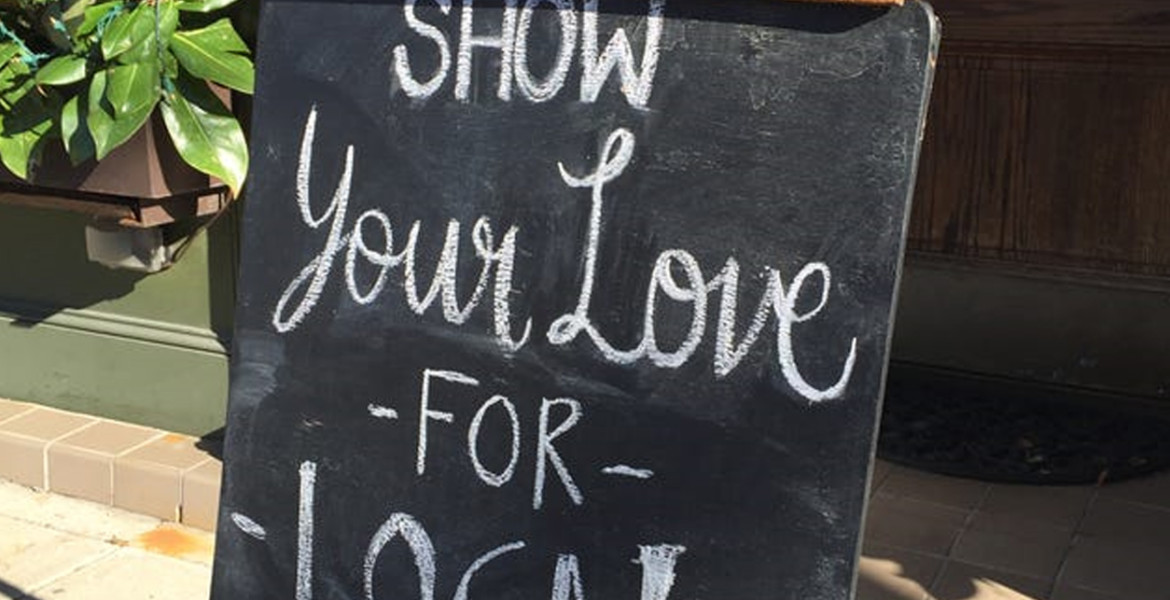 SHOW
Your Love
-FOR-
LOCAL